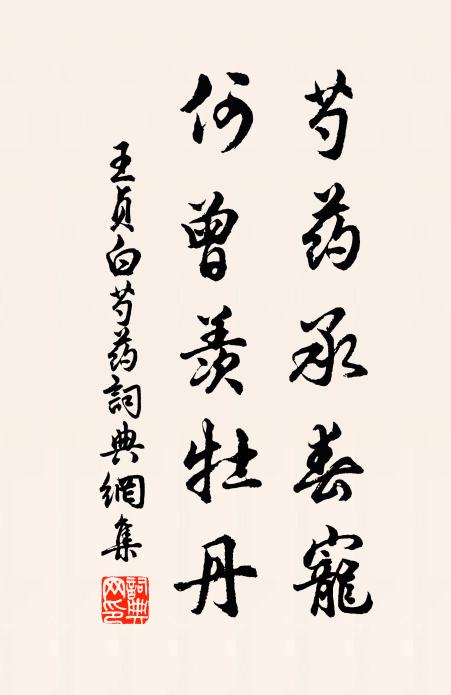 芍药承春寵
何曾羨牡丹
王贞白芍药詞典網集
詞典網印